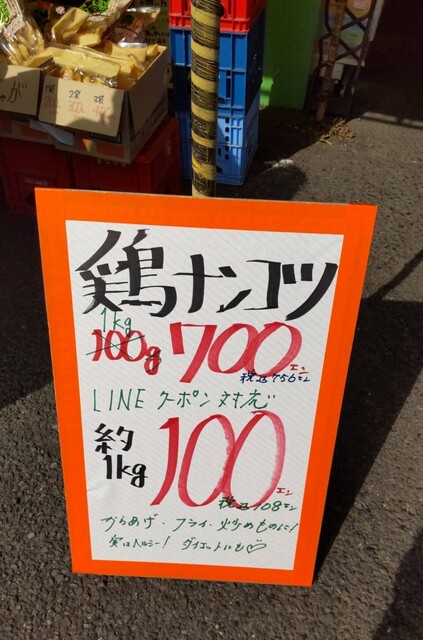 鶏ナンコツ
1kg
100g 700エン
税込756エン
LINE クーポン対応
約1kg 100エン
税込108エン
からあげ・フライ・炒めものに!
実はヘルシー! ダイエットにも♡
が
2袋
300